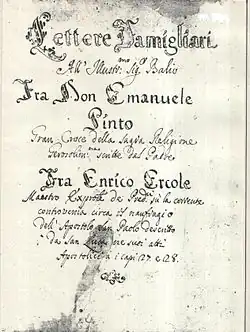 Lettere Famigliari
All' Illustr.mo Sig. Balio
Fra Don Emanuele
Pinto
Gran Croce della Sagra Religione
Gerosolim.na scritte dal Padre
Fra Enrico Ercole
Maestro Exprov. de Pred. su la corrente
controversia circa il naufragio
dell' Apostolo San Paolo descritto
da San Luca ne suoi atti
Apostolici a i capi 27. e 28.